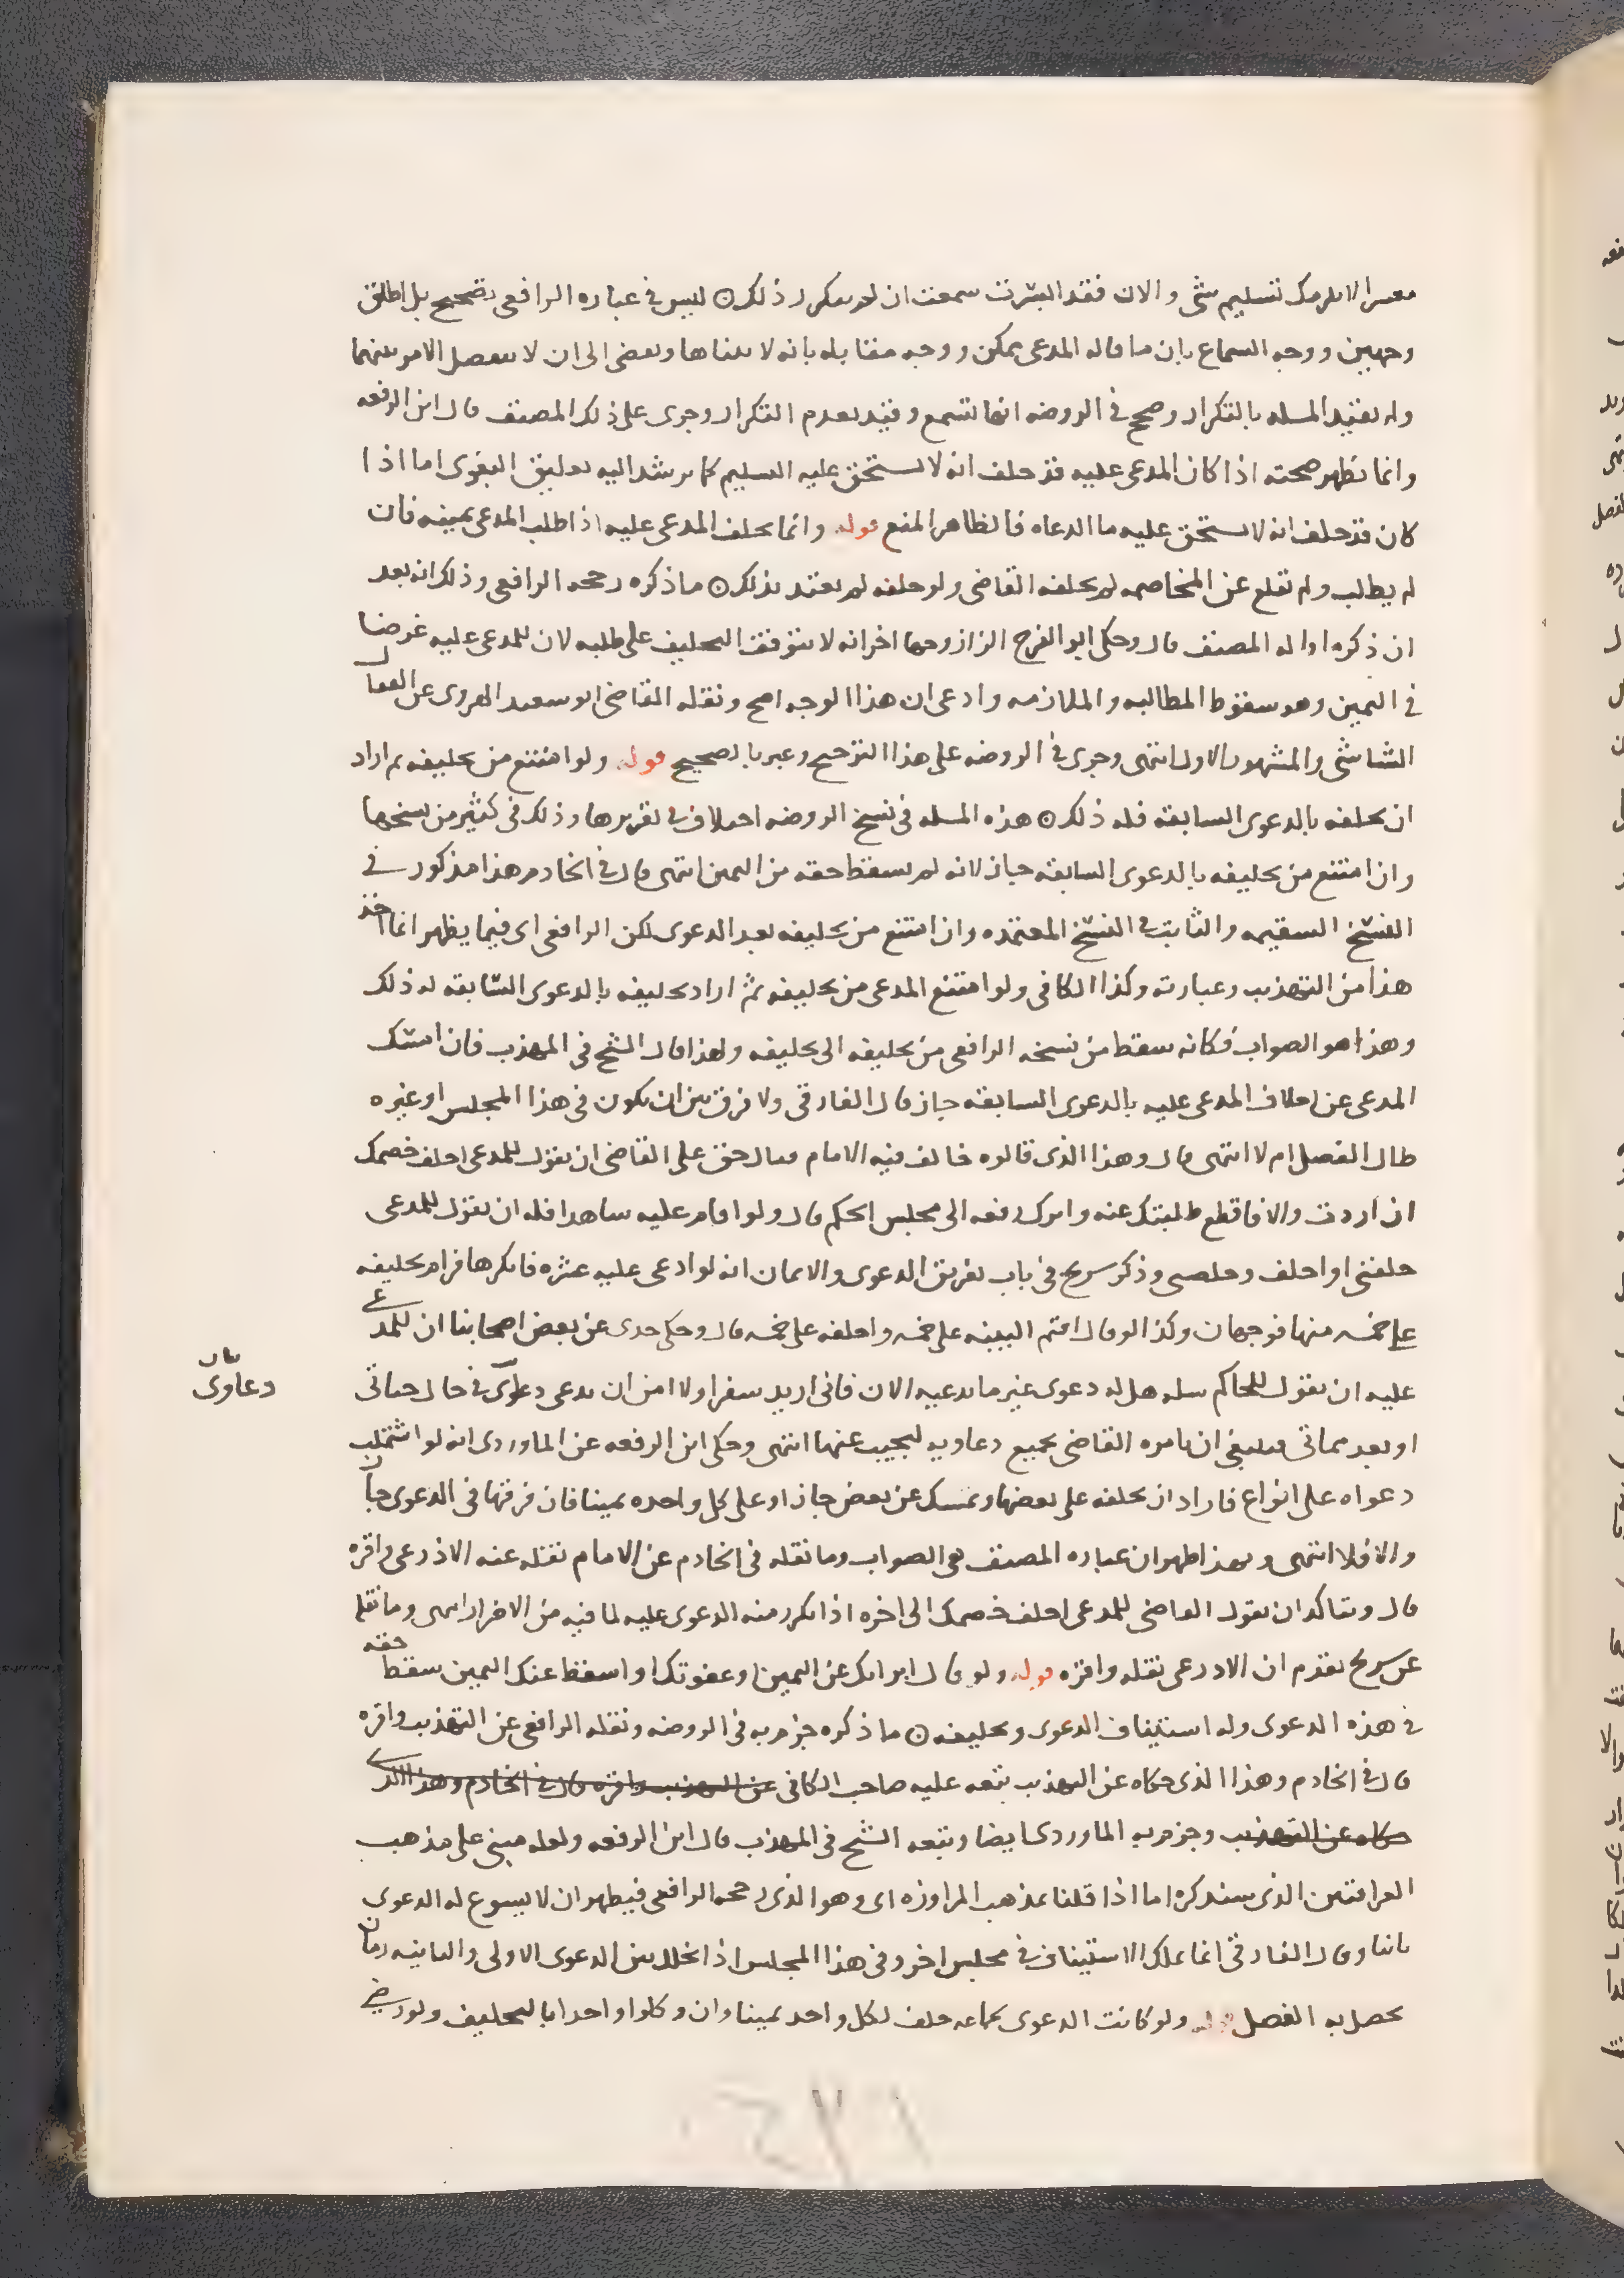 معسرا لا يلزمك تسليم شي والان فقد ايسرت سمعت ان لم يتكرر ذلك ۞ ليس في عباره الرافعي تصحيح بل اطلق
وجهين ووجه السماع بان ما قاله المدعي ممكن ووجه مقابله بانه لا يتناها ويفضي الى ان لا ينفصل الامر بينهما
ولم يقيد المسله بالتكرار وصحح في الروضه انها تسمع وقيد بعدم التكرار وجرى على ذلك المصنف قال ابن الرفعه
وانما تظهر صحته اذا كان المدعى عليه قد حلف انه لا يستحق عليه التسليم كما يرشد اليه تعليق البغوي اما اذا
كان قد حلف انه لا يستحق عليه ما ادعاه فالظاهر المنع قوله وانما يحلف المدعى عليه اذا طلب المدعي يمينه فان
لم يطلب ولم تقلع عن المخاصمه لم يحلفه القاضي ولو حلفه لم يعتد بذلك ۞ ما ذكره رجحه الرافعي وذلك انه بعد
ان ذكره المصنف قال وحكى ابو الفرج الزاز وجها اخر انه لا يتوقف التحليف على طلبه لان للمدعى عليه غرضا
في اليمين وهو سقوط المطالبه والملازمه وادعى ان هذا الوجه اصح ونقله القاضي ابو سعد الهروي عن القفال
الشاشي والمشهور الاول انتهى وجرى في الروضه على هذا الترجيح وعبر بالصحيح قوله ولو امتنع من تحليفه ثم اراد
ان يحلفه بالدعوى السابقه فله ذلك ۞ هذه المسله في نسخ الروضه اختلاف في تقريرها وذلك في كثير من نسخها
وان امتنع من تحليفه بالدعوى السابقه جاز لانه لم يسقط حقه من اليمين انتهى قال في الخادم هذا مذكور في
النسخ السقيمه والثابت في النسخ المعتمده وان امتنع من تحليفه بعد الدعوى لكن الرافعي اي فيما يظهر انما اخذ
هذا من التهذيب وعبارته وكذا الكافي ولو امتنع المدعي من تحليفه ثم اراد تحليفه بالدعوى السابقه له ذلك
وهذا هو الصواب فكانه سقط من نسخه الرافعي من تحليفه الى تحليفه ولهذا قال الشيخ في المهذب فان امسك
المدعي عن احلاف المدعى عليه بالدعوى السابقه جاز قال الفارقي ولا فرق بين ان يكون في هذا المجلس او غيره
طال الفصل ام لا انتهى قال وهذا الذي قالوه خالف فيه الامام فقال حق على القاضي ان يقول للمدعي احلف خصمك
ان اردت والا فاقطع طلبتك عنه واترك رفعه الى مجلس الحكم قال ولو اقام عليه ساهدا فله ان يقول للمدعي
حلفني او احلف وخلصني وذكر سريج في باب تفريق الدعوى والايمان انه لو ادعى عليه عشره فانكرها فرام تحليفه
على خمسه منها فوجهان وكذا لو قال اقيم البينه على خمسه واحلفه على خمسه قال وحكى جدي عن بعض اصحابنا ان للمدعى
عليه ان يقول للحاكم سله هل له دعوى غير ما يدعيه الان فاني اريد سفرا ولا امن ان يدعي دعاوى في حال حياتي
بيان
دعاوى
او بعد مماتي فينبغي ان يامره القاضي بجميع دعاويه ليجيب عنها انتهى وحكى ابن الرفعه عن الماوردي انه لو اشتملت
دعواه على انواع فاراد ان يحلفه على بعضها ويمسك عن بعض جاز او على كل واحده يمينا فان فرقها في الدعوى جاز
والا فلا انتهى وبهذا ظهر ان عباره المصنف هي الصواب وما نقله في الخادم عن الامام نقله عنه الاذرعي واقره
قال ويتاكد ان يقول القاضي للمدعي احلف خصمك الى اخره اذا تكرر منه الدعوى عليه لما فيه من الاضرار انتهى وما نقله
عن سريج تقدم ان الاذرعي نقله واقره قوله ولو قال ابراتك عن اليمين او عفوتك او اسقط عنك اليمين سقط حقه
في هذه الدعوى وله استيناف الدعوى وتحليفه ۞ ما ذكره جزم به في الروضه ونقله الرافعي عن التهذيب واقره
قال في الخادم وهذا الذي حكاه عن التهذيب تبعه عليه صاحب الكافي عن التهذيب واقره قال في الخادم وهذا الذي
حكاه عن التهذيب وجزم به الماوردي ايضا وتبعه الشيخ في المهذب قال ابن الرفعه ولعله مبني على مذهب
العراقيين الذي سنذكره اما اذا قلنا بمذهب المراوزه اي وهو الذي رجحه الرافعي فيظهر ان لا يسوغ له الدعوى
ثانيا وقال الفارقي انما يملك الاستيناف في مجلس اخر وفي هذا المجلس اذا تخلل بين الدعوى الاولى والثانيه زمان
يحصل به الفصل قوله ولو كانت الدعوى لجماعه حلف لكل واحد يمينا وان وكلوا واحدا بالتحليف ولو رضي